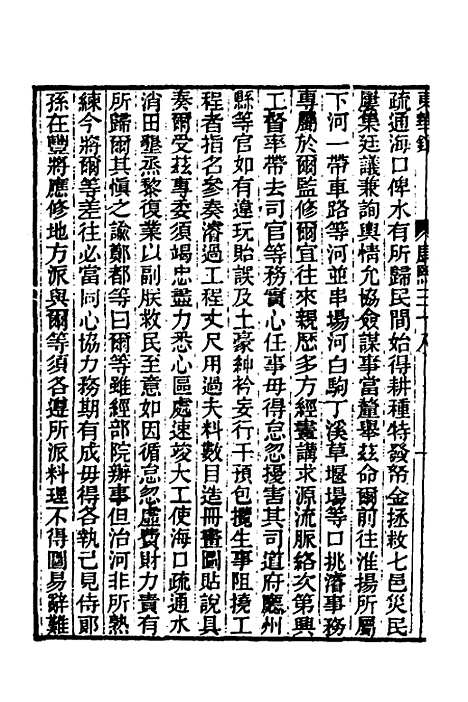 東華錄 康熙三十八 一
疏通海口俾水有所歸民間始得耕種特發帑金拯救七邑災民
屢集廷議兼詢輿情允協僉謀事當釐舉茲命爾前往淮揚所屬
下河一帶車路等河並串場河白駒丁溪草堰場等口挑濬事務
專屬於爾監修爾宜往來親歷多方經畫講求源流脈絡次第興
工督率帶去司官等務實心任事毋得怠忽擾害其司道府廳州
縣等官如有違玩貽誤及土豪紳衿妄行干預包攬生事阻撓工
程者指名參奏濬過工程丈尺用過夫料數目造冊畫圖貼說具
奏爾受茲專委須竭忠盡力悉心區處速竣大工使海口疏通水
消田墾烝黎復業以副朕救民至意如因循怠忽虛費財力責有
所歸爾其慎之諭鄭都等曰爾等雖經部院辦事但治河非所熟
練今將爾等差往必當同心協力務期有成毋得各執己見侍郎
孫在豐將應修地方派與爾等須各遵所派料理不得圖易辭難